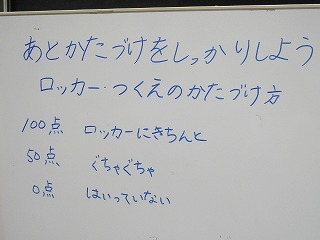 あとかたづけをしっかりしよう
ロッカー・つくえのかたづけ方
100点 ロッカーにきちんと
50点 ぐちゃぐちゃ
0点 はいっていない